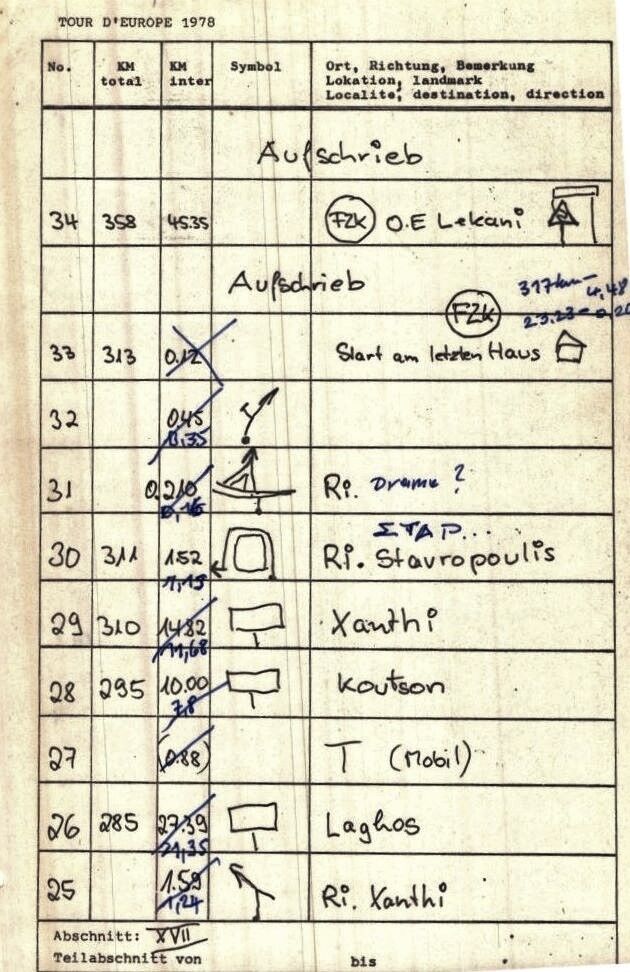 TOUR D'EUROPE 1978
No. KM total KM inter Symbol Ort, Richtung, Bemerkung
Lokation, landmark
Localite, destination, direction
Aufschrieb
34 358 45.35 FZK O.E Lekani
Aufschrieb
317km
FZK
33 313 0.12 Start am letzten Haus
32 0.45
0,35
31 0.210 Ri. Drama ?
0,16
ΣΤΑΡ...
30 311 1.52 Ri. Stavropoulis
29 310 14.82 Xanthi
11,68
28 295 10.00 Koutson
7,8
27 (0.88) T (Mobil)
26 285 27.39 Laghos
21,35
25 1.59 Ri. Xanthi
1,24
Abschnitt: XVII
Teilabschnitt von bis